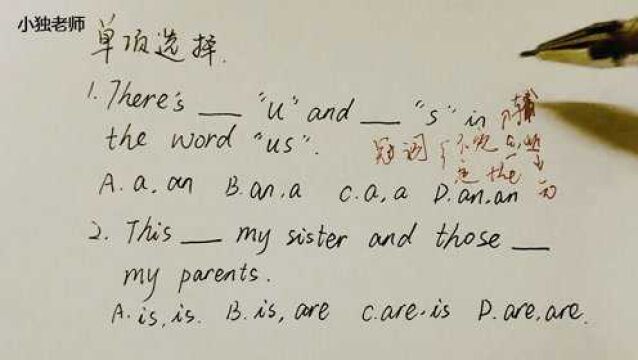 小独老师
单项选择.
1. There's __ "u" and __ "s" in
the word "us".
冠词 { 不定 a, an
定 the
A. a, an B. an, a C. a, a D. an, an
2. This __ my sister and those __
my parents.
A. is, is. B. is, are C. are, is D. are, are.